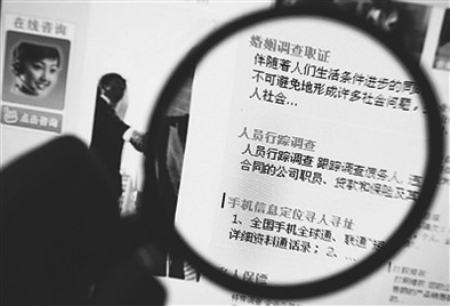 在线咨询
点击咨询
婚姻调查取证
伴随着人们生活条件进步的同
不可避免地形成许多社会问题，
人社会...
人员行踪调查
人员行踪调查 跟踪调查债务人、违
合同的公司职员、贷款和保险及其
手机信息定位寻人寻址
1、全国手机全球通、联通
详细资料通话录；2、...
私人保镖